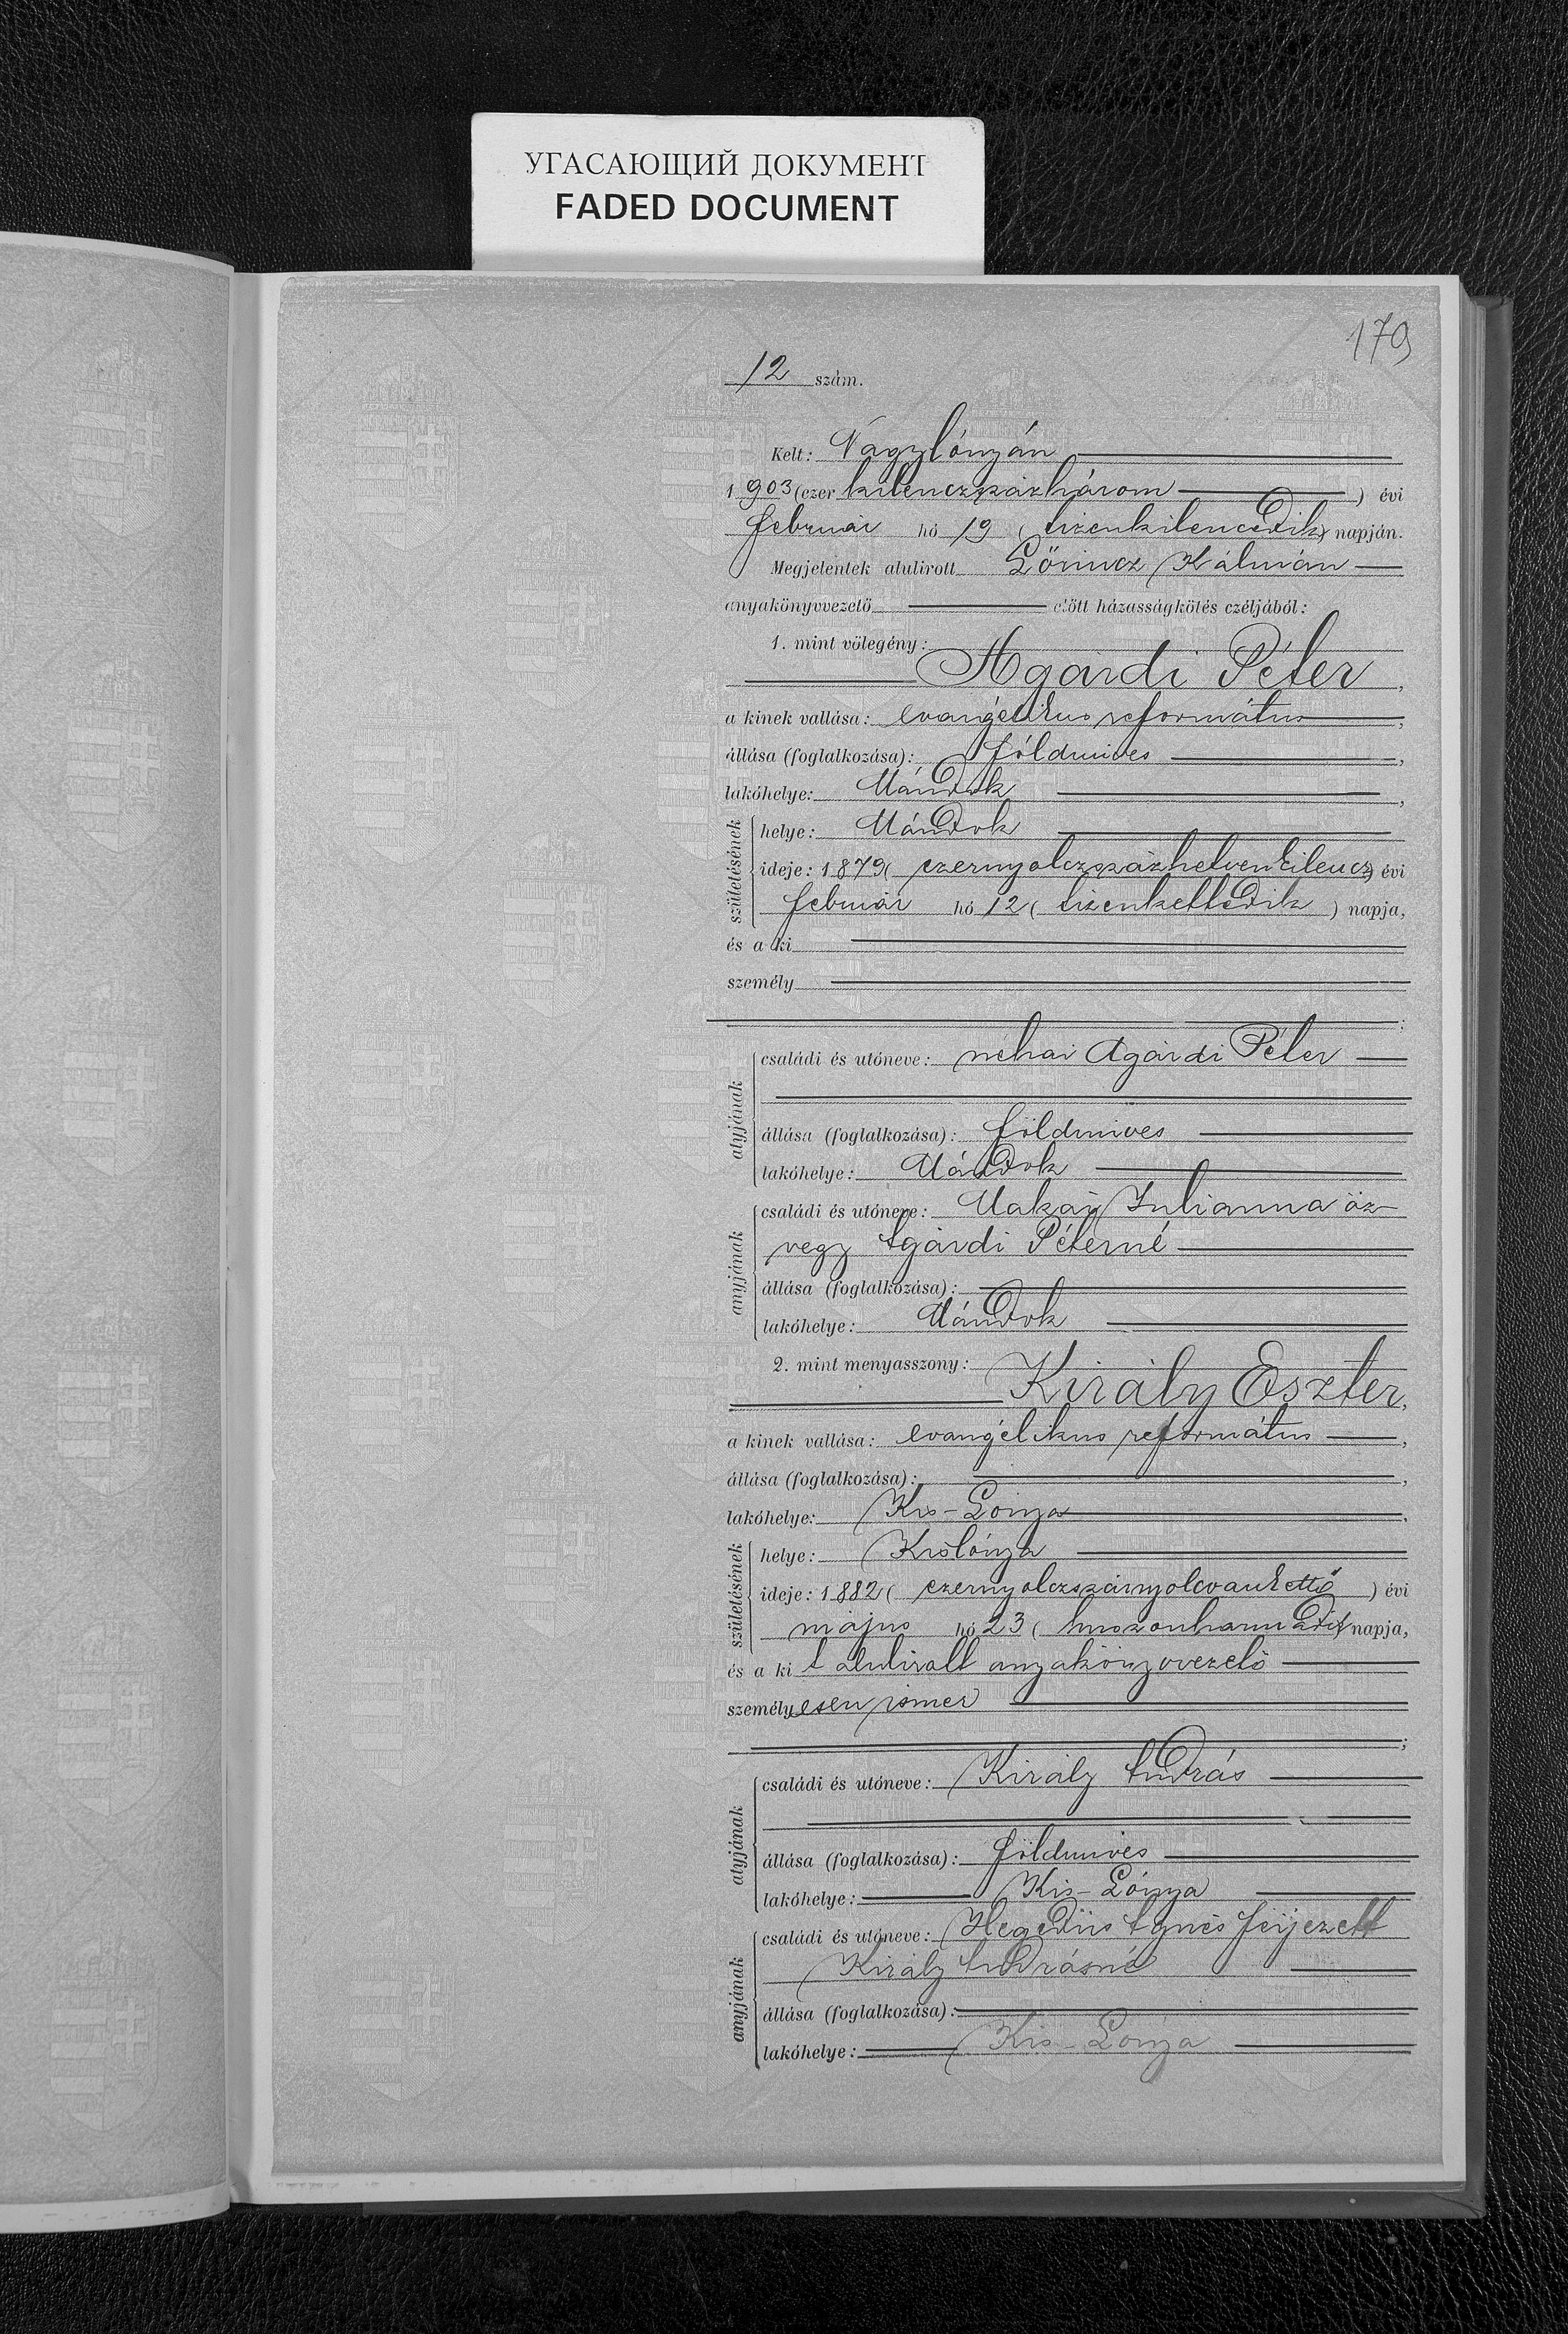 УГАСАЮЩИЙ ДОКУМЕНТ
FADED DOCUMENT
179
12 szám.
Kelt: Nagylónyán
1903 (ezer kilenczszázhárom) évi
február hó 19 (tizenkilencedik) napján.
Megjelentek alulirott Lőrincz Kálmán
anyakönyvvezető előtt házasságkötés czéljából:
1. mint vőlegény:
Agárdi Péter,
a kinek vallása: evangélikus református,
állása (foglalkozása): földmives,
lakóhelye: Mándok,
születésének
helye: Mándok
ideje: 1879 (ezernyolczszázhetvenkilencz) évi
február hó 12 (tizenkettedik) napja,
és a ki
személy
;
atyjának
családi és utóneve: néhai Agárdi Péter
állása (foglalkozása): földmives
lakóhelye: Mándok
anyjának
családi és utóneve: Makai Julianna öz-
vegy Agárdi Péterné
állása (foglalkozása):
lakóhelye: Mándok
2. mint menyasszony:
Király Eszter,
a kinek vallása: evangélikus református,
állása (foglalkozása):,
lakóhelye: Kis-Lónya,
születésének
helye: Kislónya
ideje: 1882 (ezernyolczszáznyolcvankettő) évi
május hó 23 (huszonharmadik) napja,
és a ki t alulirott anyakönyvvezető
személyesen ismer
;
atyjának
családi és utóneve: Király András
állása (foglalkozása): földmives
lakóhelye: Kis-Lónya
anyjának
családi és utóneve: Hegedüs Ágnes férjezett
Király Andrásné
állása (foglalkozása):
lakóhelye: Kis-Lónya